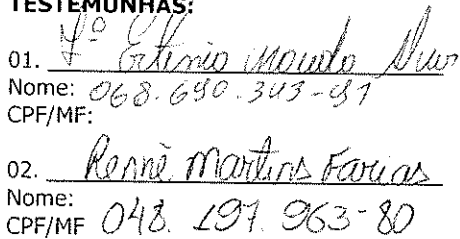 TESTEMUNHAS:
01. Fº Ertenio
Nome: 068.690.343-91
CPF/MF:
02. Rennê Martins Farias
Nome:
CPF/MF 048. 197. 963-80